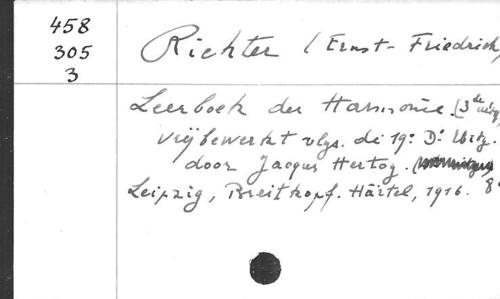 458
305
3
Richter (Ernst-Friedrich
Leerboek der Harmonie. (3de uitg
vrij bewerkt vlgs. de 19e De Uitg.
door Jacques Hertog.
Leipzig, Breitkopf. Härtel, 1916. 8°